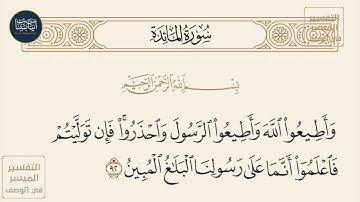 سُورَةُ المَائِدَةِ
بِسْمِ اللَّهِ الرَّحْمَٰنِ الرَّحِيمِ
وَأَطِيعُوا۟ ٱللَّهَ وَأَطِيعُوا۟ ٱلرَّسُولَ وَٱحْذَرُوا۟ۚ فَإِن تَوَلَّيْتُمْ
فَٱعْلَمُوٓا۟ أَنَّمَا عَلَىٰ رَسُولِنَا ٱلْبَلَٰغُ ٱلْمُبِينُ ٩٢
التفسير
الميسر
في الوصف
التفسير
الميسر
في الوصف